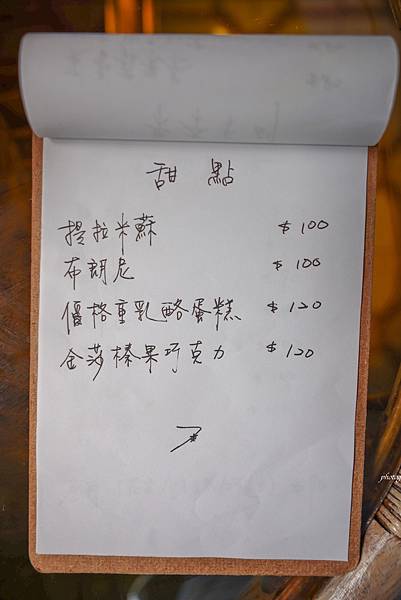 甜點
提拉米蘇 $100
布朗尼 $100
優格重乳酪蛋糕 $120
金莎榛果巧克力 $120